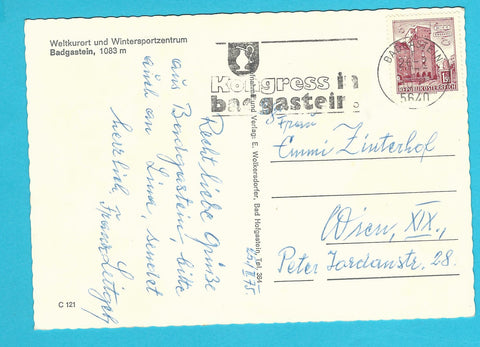 Weltkurort und Wintersportzentrum
Badgastein, 1083 m
Kongress in
badgastein.
5640
REPUBLIK ÖSTERREICH
Verlag: E. Wolkersdorfer, Bad Hofgastein, Tel. 384
Recht liebe Grüße
aus Badgastein, bitte
auch an Lima, sendet
herzlich, Franz
25. II 75
Frau
Emmi Zinterhof
Wien, XIX.,
Peter Jordanstr. 28.
C 121